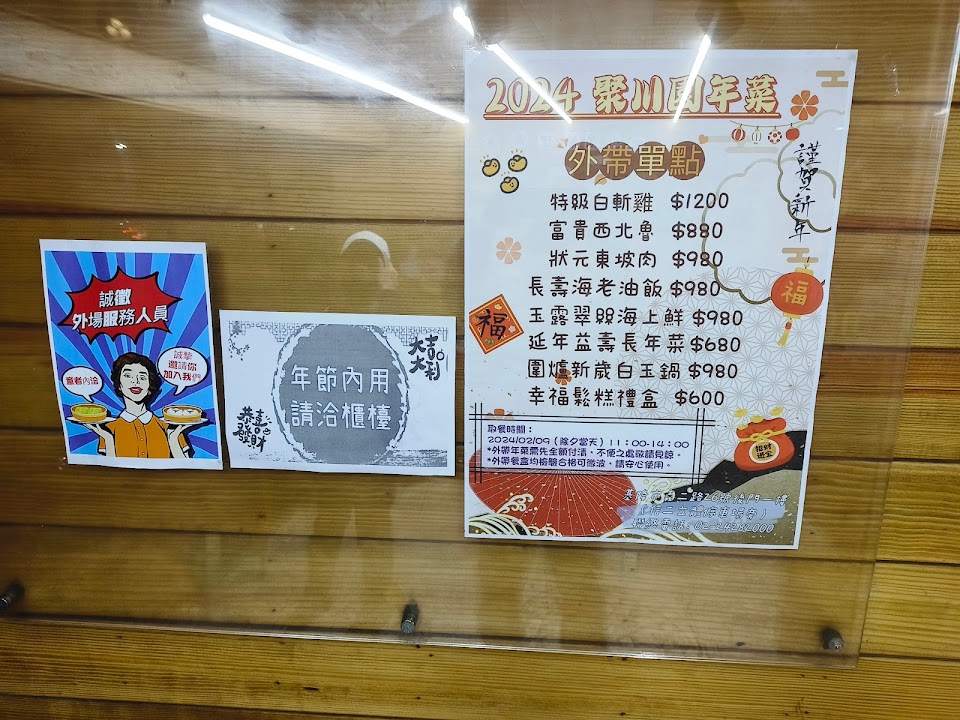 誠徵
外場服務人員
意者內洽
誠摯
邀請你
加入我們
年節內用
請洽櫃檯
大吉
大利
恭喜
發財
2024 聚川園年菜
外帶單點
謹賀新年
特級白斬雞 $1200
富貴西北魯 $880
狀元東坡肉 $980
長壽海老油飯 $980
玉露翠照海上鮮 $980
延年益壽長年菜 $680
圍爐新歲白玉鍋 $980
幸福鬆糕禮盒 $600
福
福
取餐時間：
2024/02/09（除夕當天）11：00-14：00
*外帶年菜需先全額付清，不便之處敬請見諒。
*外帶餐盒均檢驗合格可微波，請安心使用。
招財
進寶